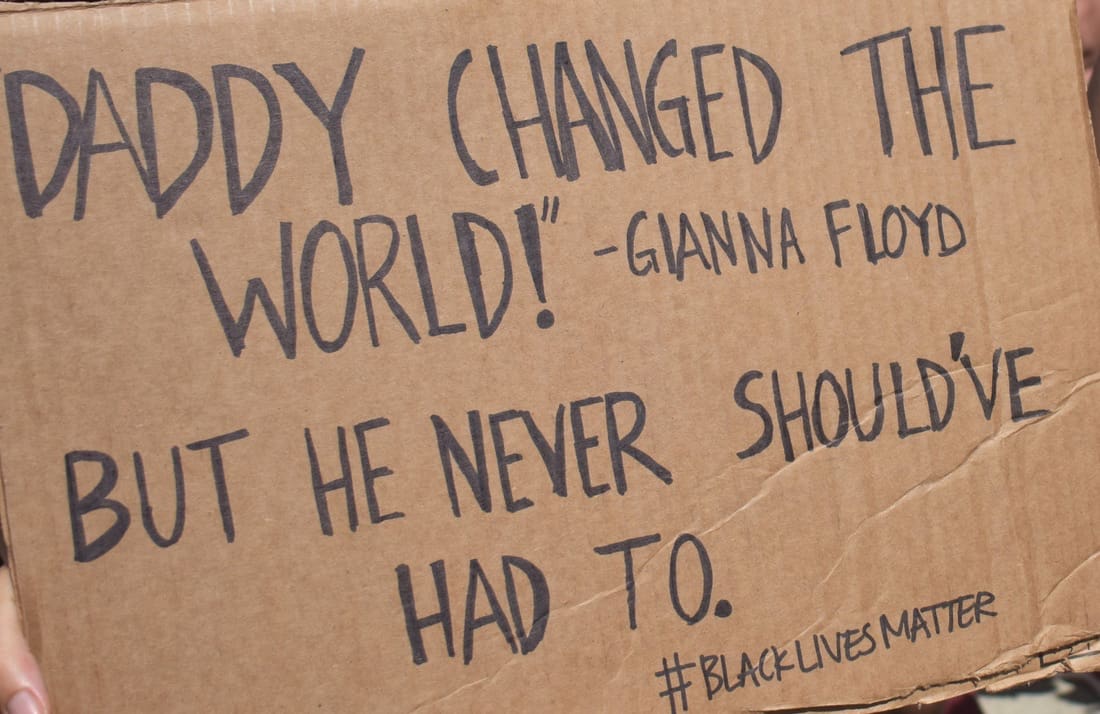 "DADDY CHANGED THE
WORLD!" -GIANNA FLOYD
BUT HE NEVER SHOULD'VE
HAD TO.
#BLACKLIVESMATTER